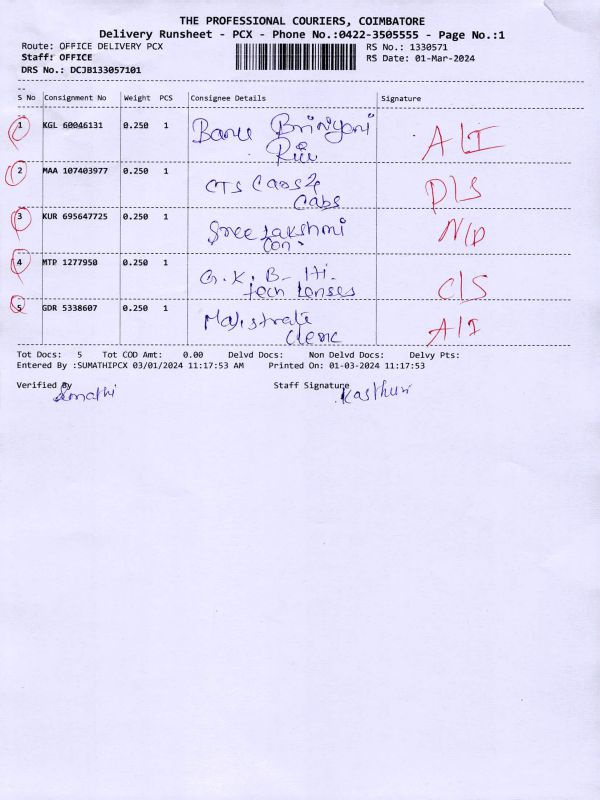 THE PROFESSIONAL COURIERS, COIMBATORE
Delivery Runsheet - PCX - Phone No.:0422-3505555 - Page No.:1
Route: OFFICE DELIVERY PCX RS No.: 1330571
Staff: OFFICE RS Date: 01-Mar-2024
DRS No.: DCJB133057101
S No Consignment No Weight PCS Consignee Details Signature
1 KGL 60046131 0.250 1 Banu Briyani A/I
Rice
2 MAA 107403977 0.250 1 CTS Caos2 D/S
Cabs
3 KUR 695647725 0.250 1 Sree Lakshmi N/D
Con.
4 MTP 1277950 0.250 1 G.K.B- Hi. C/S
tech Lenses
5 GDR 5338607 0.250 1 Majistrate A/I
Clerk
Tot Docs: 5 Tot COD Amt: 0.00 Delvd Docs: Non Delvd Docs: Delvy Pts:
Entered By :SUMATHIPCX 03/01/2024 11:17:53 AM Printed On: 01-03-2024 11:17:53
Verified By Staff Signature
Sumathi Kasthuri